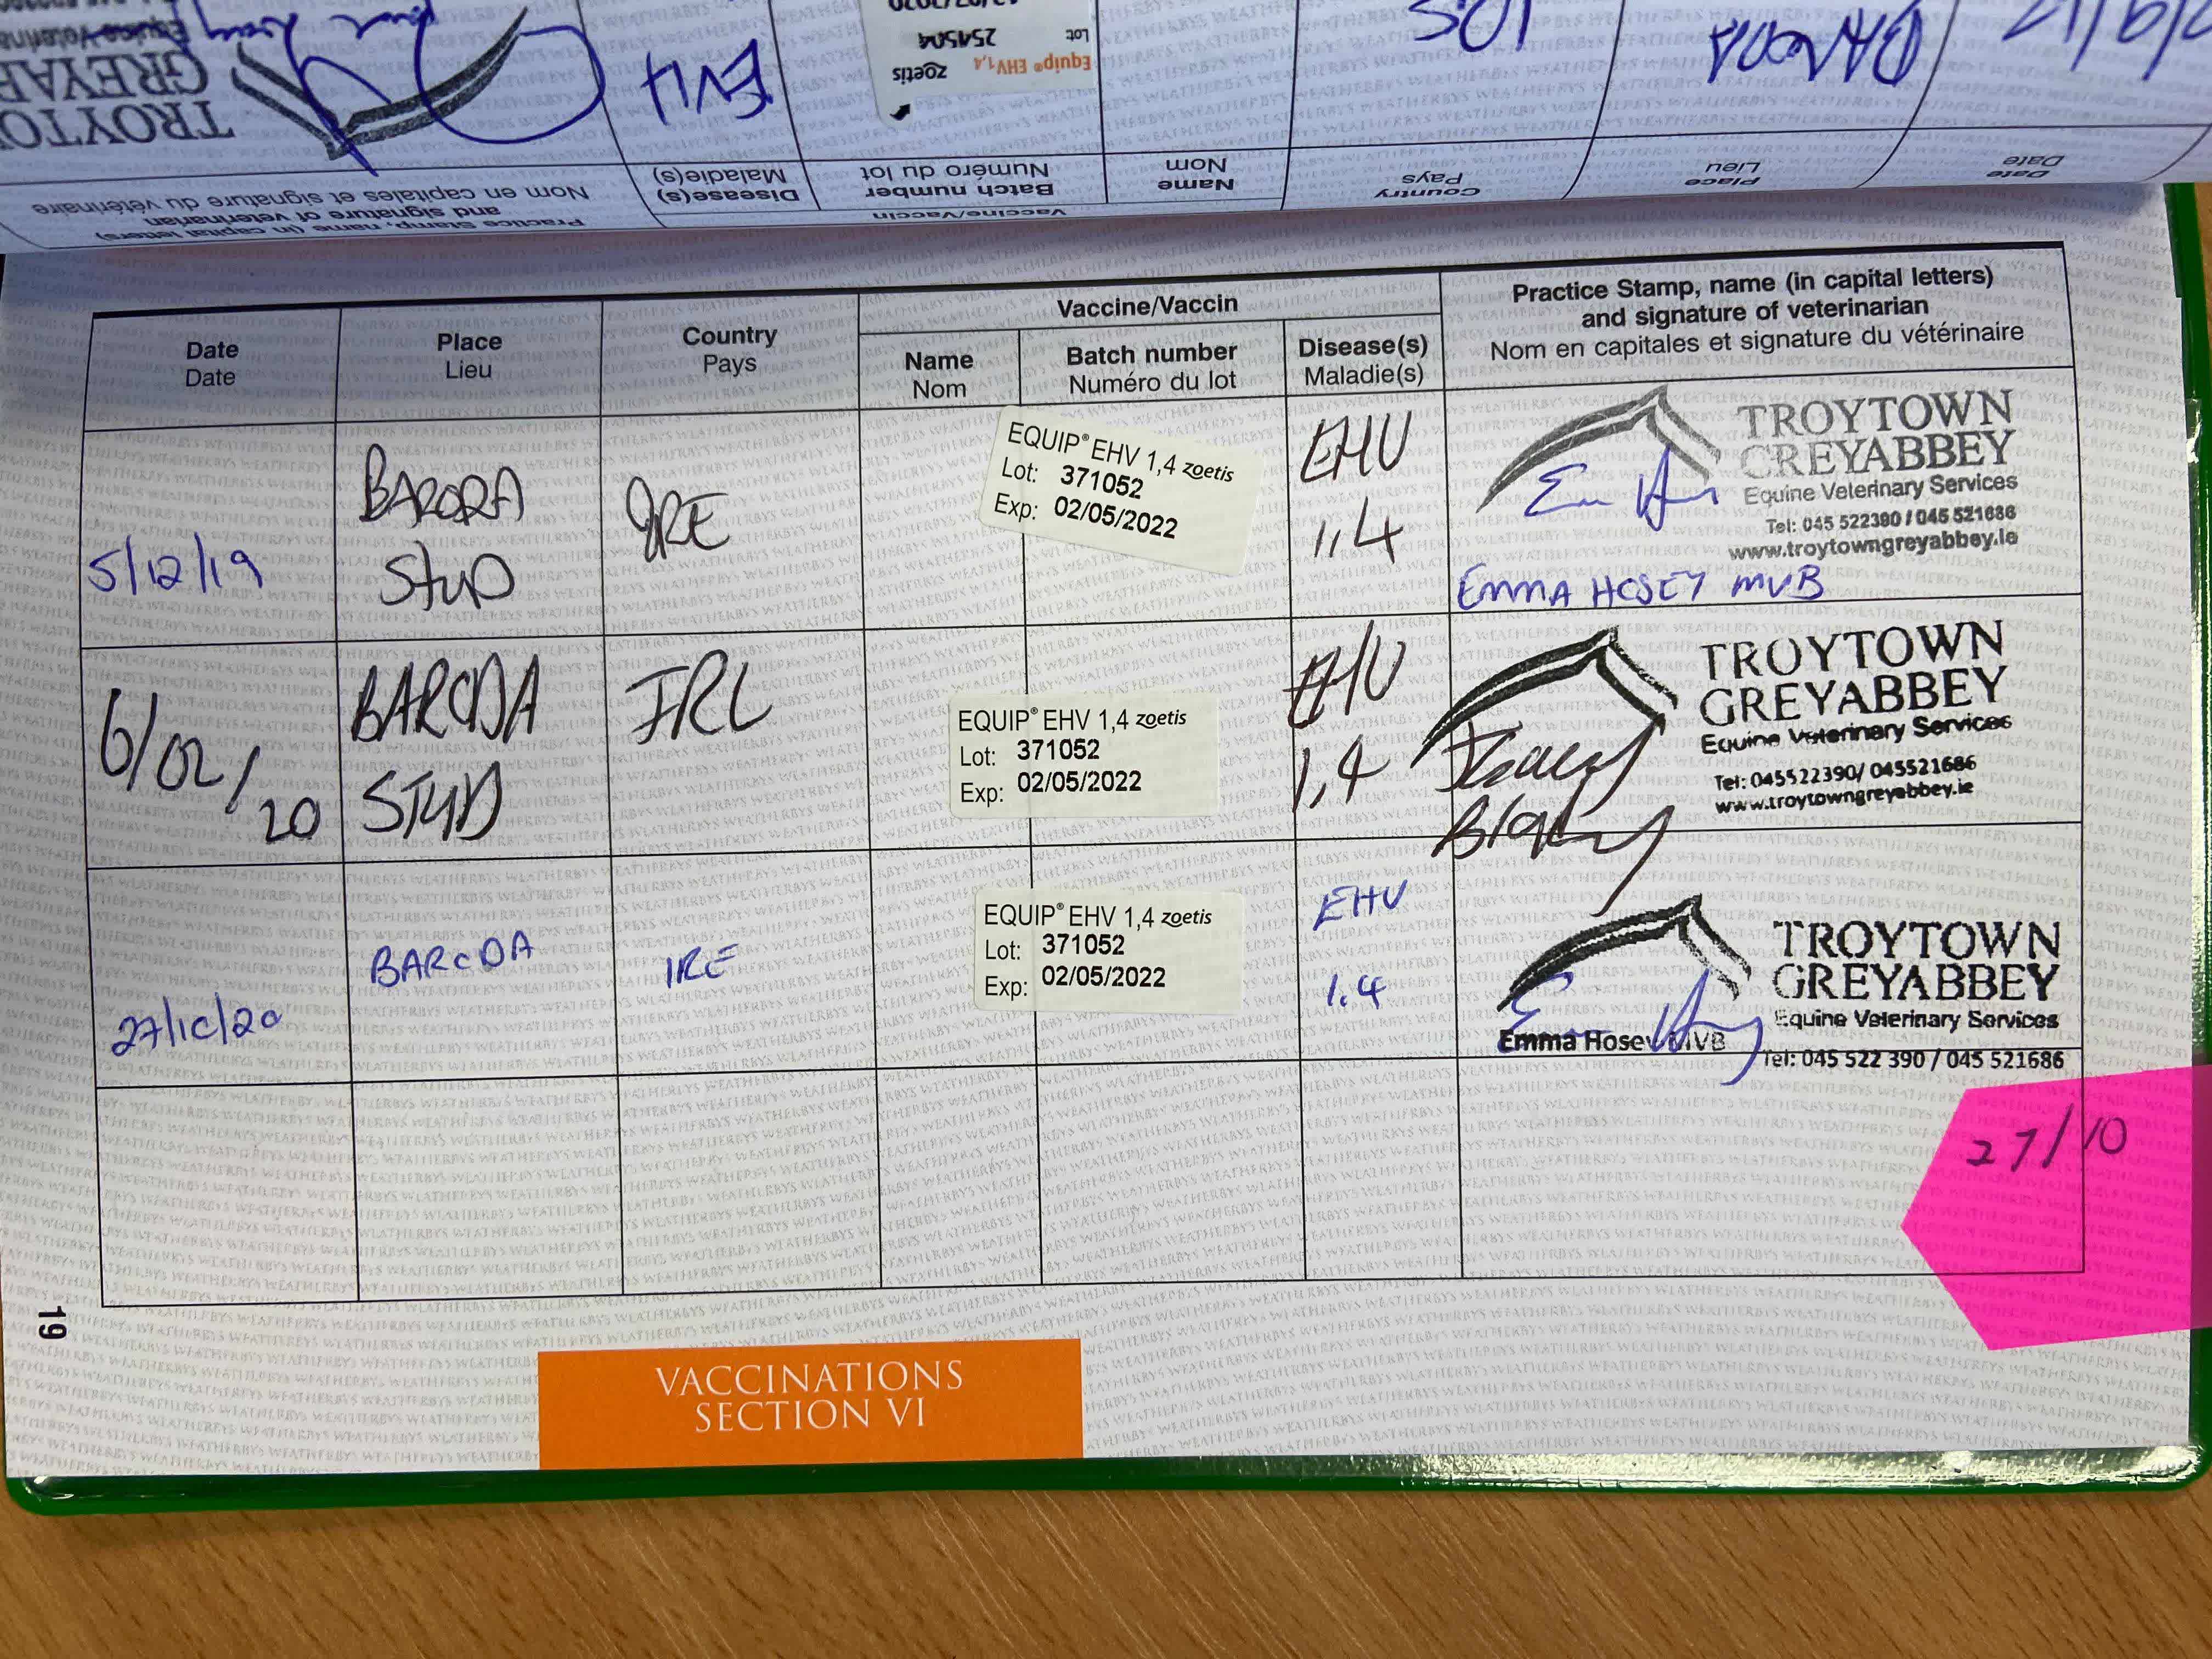 TROYTO
GREYAB
EHV
Equip® EHV1,4 zoetis
Lot 254504
Practice Stamp, name (in capital letters)
and signature of veterinarian
Nom en capitales et signature du vétérinaire
Disease(s)
Maladie(s)
Vaccine/Vaccin
Batch number
Numéro du lot
Name
Nom
Country
Pays
Place
Lieu
Date
Date
Date
Date
Place
Lieu
Country
Pays
Vaccine/Vaccin
Name
Nom
Batch number
Numéro du lot
Disease(s)
Maladie(s)
Practice Stamp, name (in capital letters)
and signature of veterinarian
Nom en capitales et signature du vétérinaire
5/12/19
BARODA
STUD
IRE
EQUIP® EHV 1,4 zoetis
Lot: 371052
Exp: 02/05/2022
EHV
1,4
TROYTOWN
GREYABBEY
Equine Veterinary Services
Tel: 045 522390 / 045 521686
www.troytowngreyabbey.ie
EMMA HOSEY MVB
6/02/20
BARODA
STUD
IRL
EQUIP® EHV 1,4 zoetis
Lot: 371052
Exp: 02/05/2022
EHV
1,4
TROYTOWN
GREYABBEY
Equine Veterinary Services
Tel: 045522390/ 045521686
www.troytowngreyabbey.ie
27/10/20
BARODA
IRE
EQUIP® EHV 1,4 zoetis
Lot: 371052
Exp: 02/05/2022
EHV
1.4
TROYTOWN
GREYABBEY
Equine Veterinary Services
Emma Hosey MVB
Tel: 045 522 390 / 045 521686
27/10
19
VACCINATIONS
SECTION VI